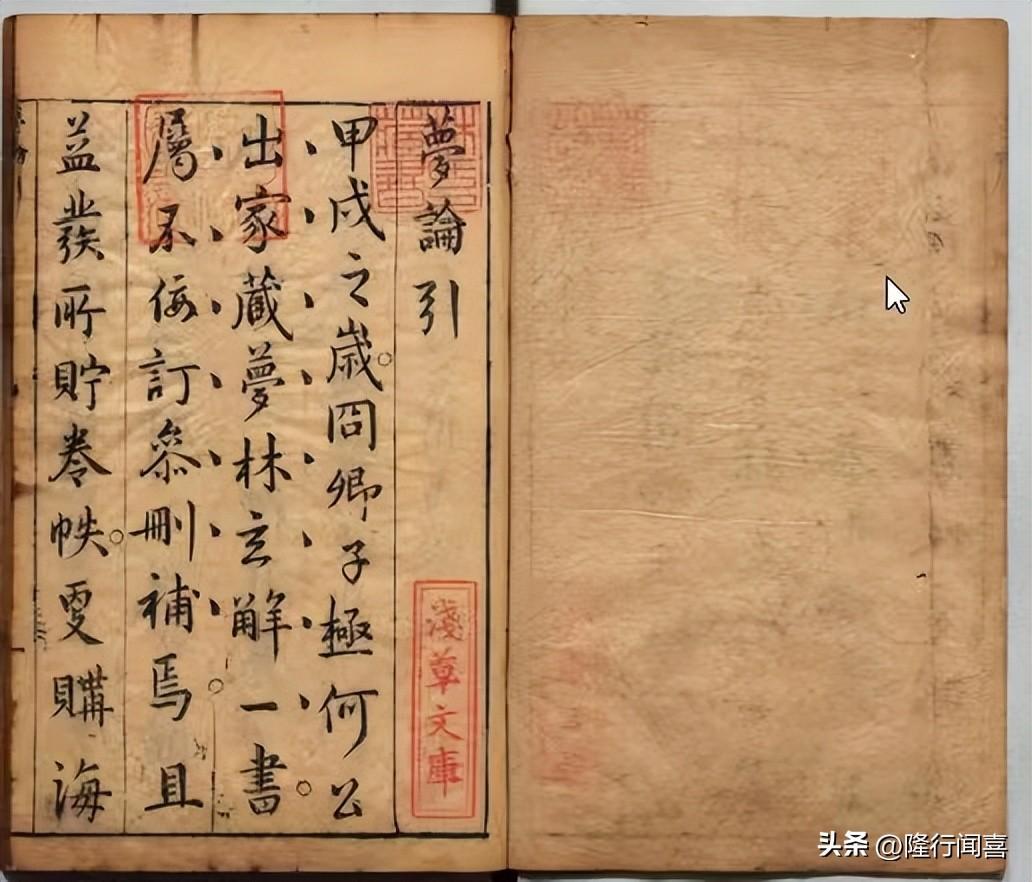 夢論引
甲戌之歲冏卿子極何公
出家藏夢林玄解一書
屬不佞訂叅刪補焉且
益發所貯卷帙更購海
淺草文庫
头条 @隆行闻喜